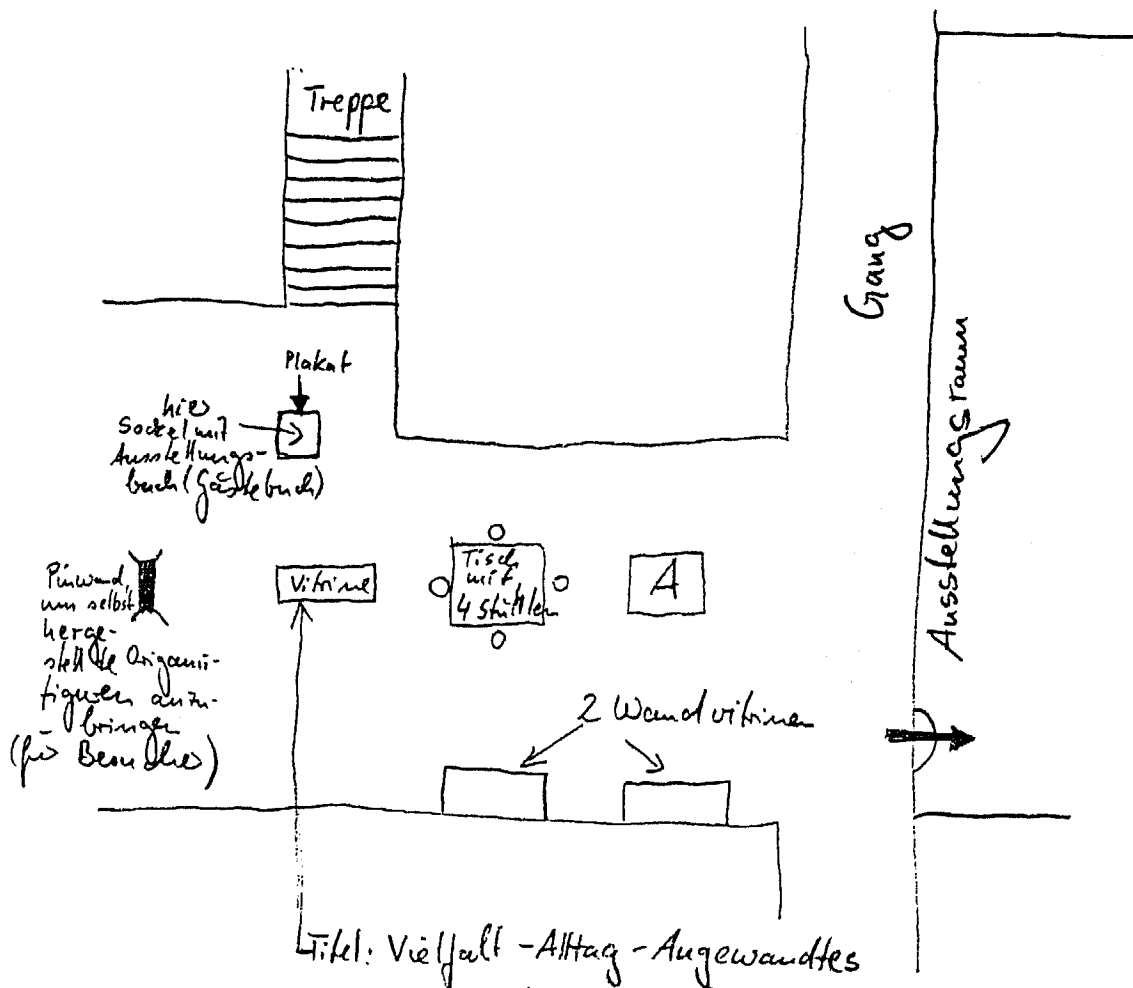 Treppe
Gang
Plakat
hier
Sockel mit
Ausstellungs-
buch (Gästebuch)
Ausstellungsraum
Pinwand,
um selbst
herge-
stellte Origami-
figuren anzu-
bringen
(für Besucher)
Vitrine
Tisch
mit
4 Stühlen
A
2 Wandvitrinen
Titel: Vielfalt - Alltag - Angewandtes